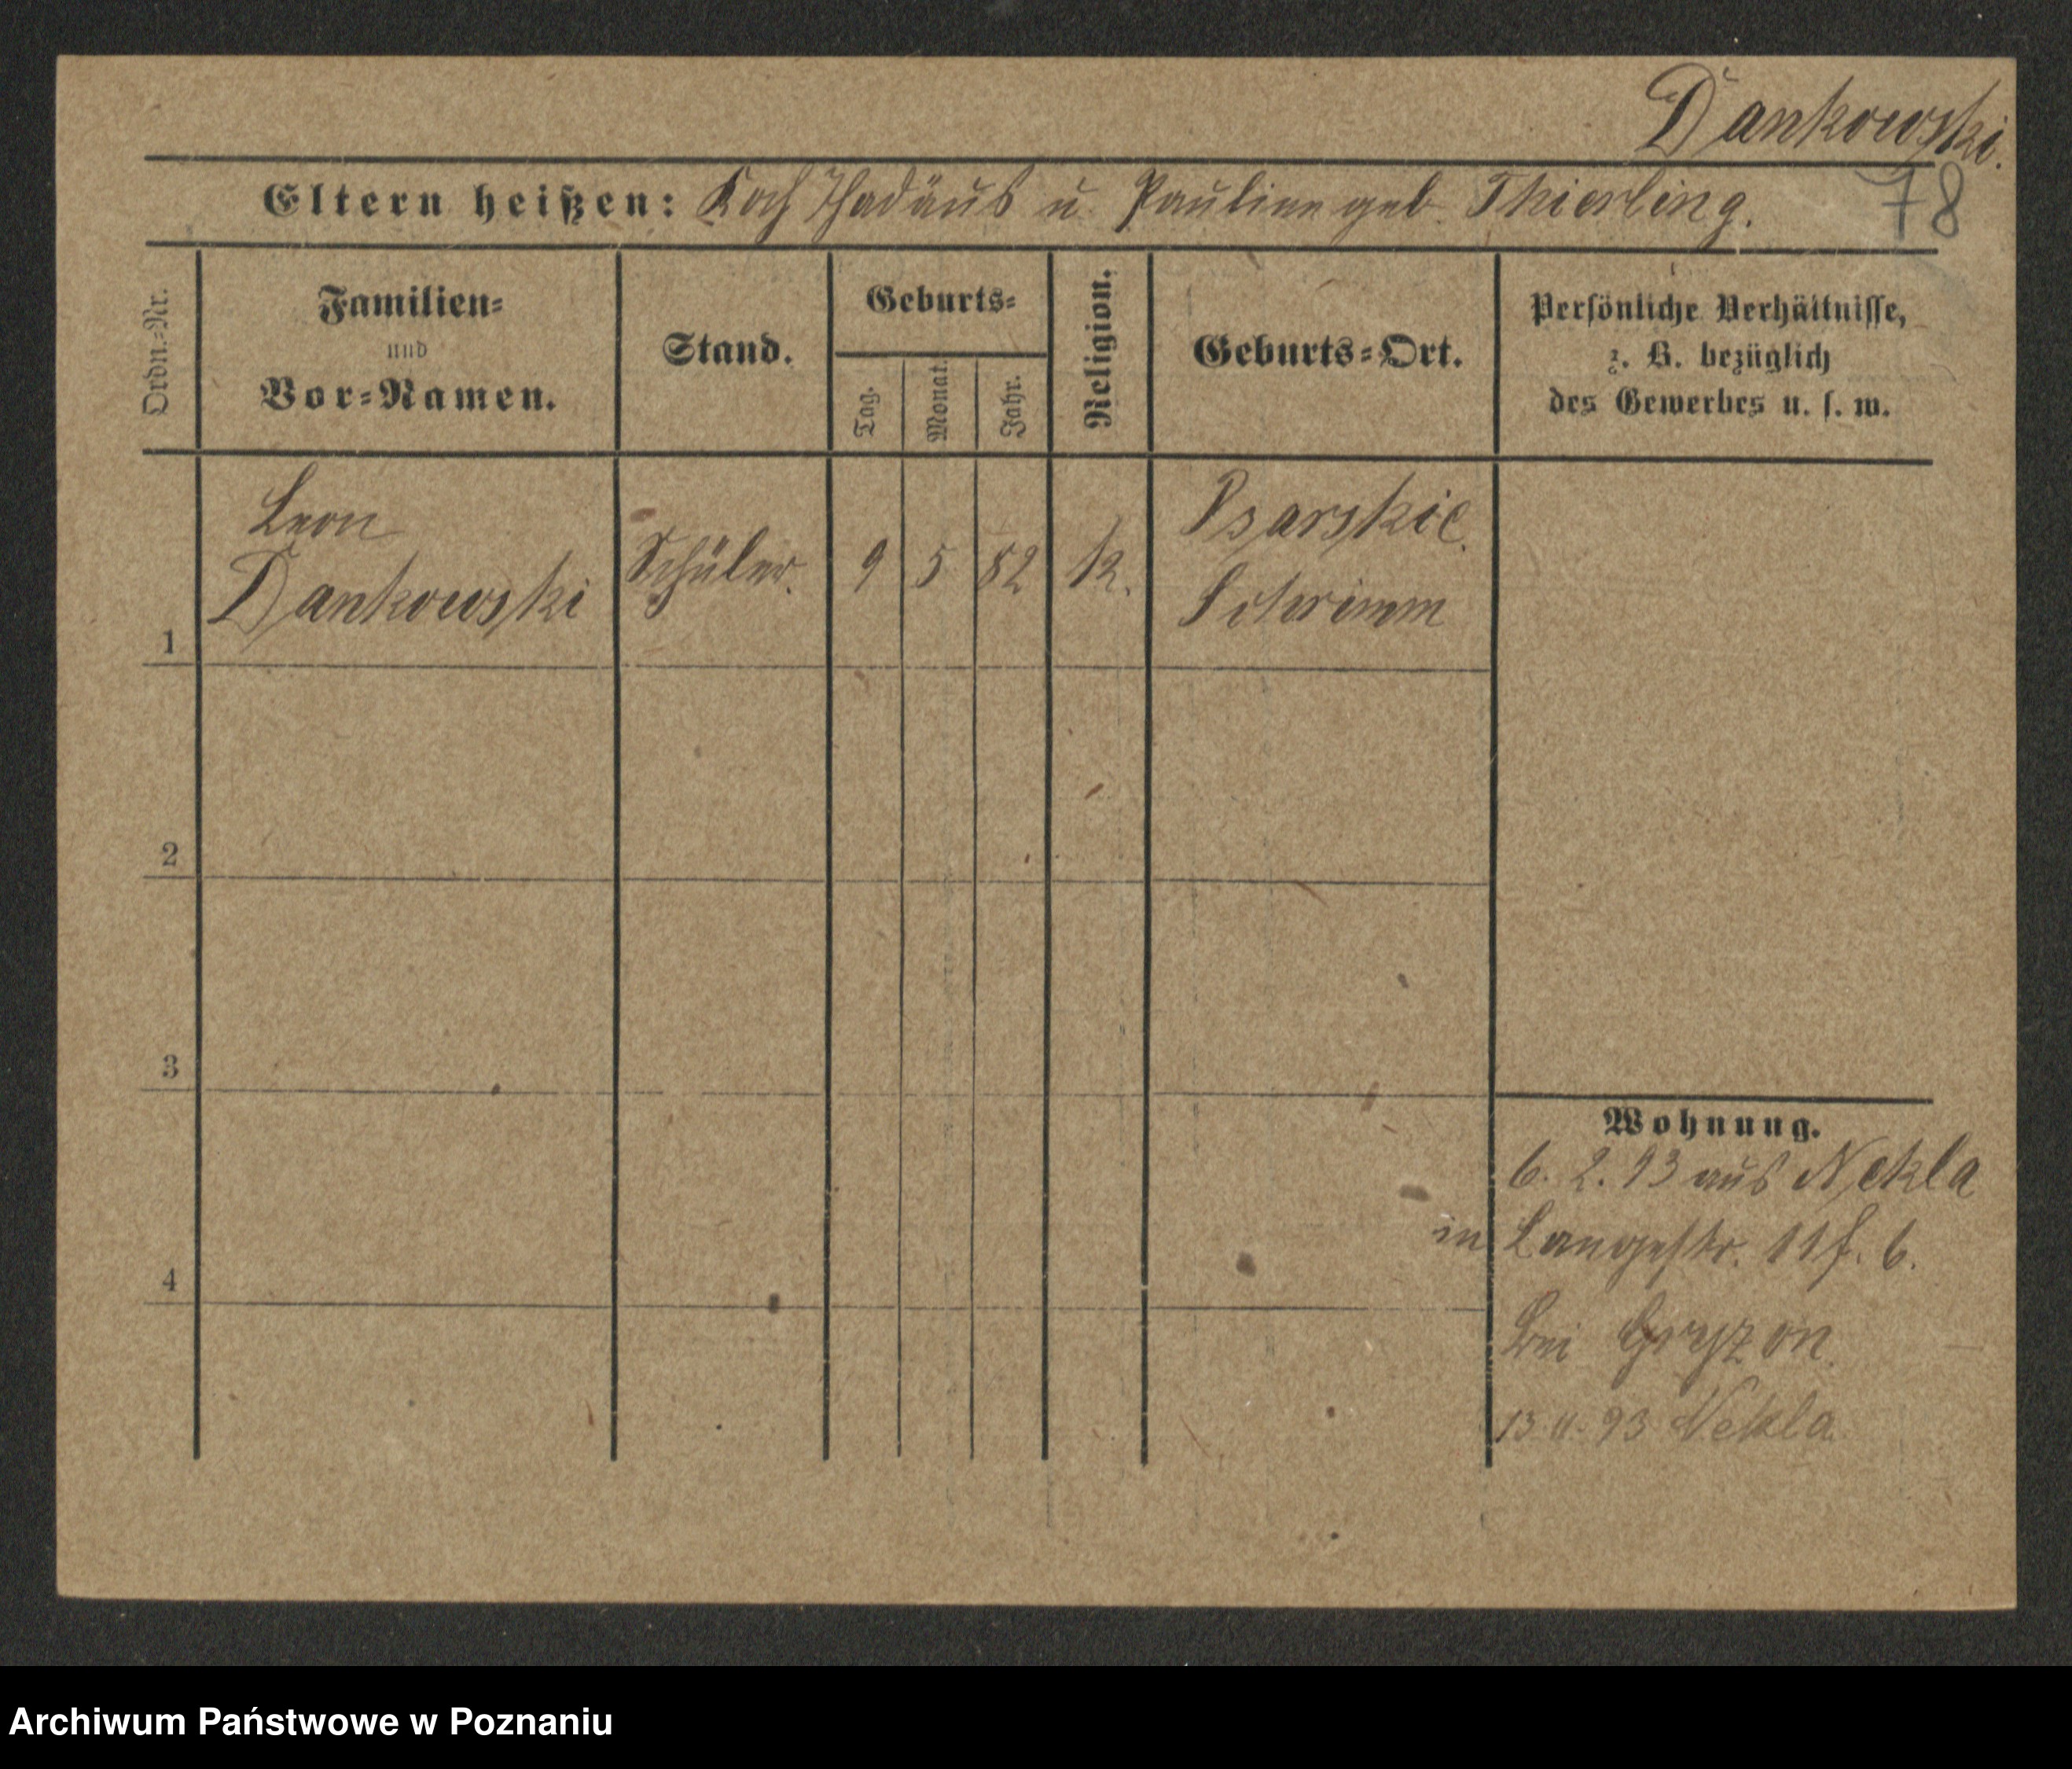 Dankowski.
Eltern heißen: Koch Thadäus u. Pauline geb. Thierling.
78
Ordn.=Nr.
Familien=
und
Vor=Namen.
Stand.
Geburts=
Tag.
Monat.
Jahr.
Religion.
Geburts=Ort.
Persönliche Verhältnisse,
z. B. bezüglich
des Gewerbes u. s. w.
1
Leon
Dankowski
Schüler.
9
5
82
k.
Psarskie.
Schrimm
2
3
4
Wohnung.
6. 2. 93 aus Nekla
in Langestr. 11
bei Gryzon.
93 Nekla
Archiwum Państwowe w Poznaniu